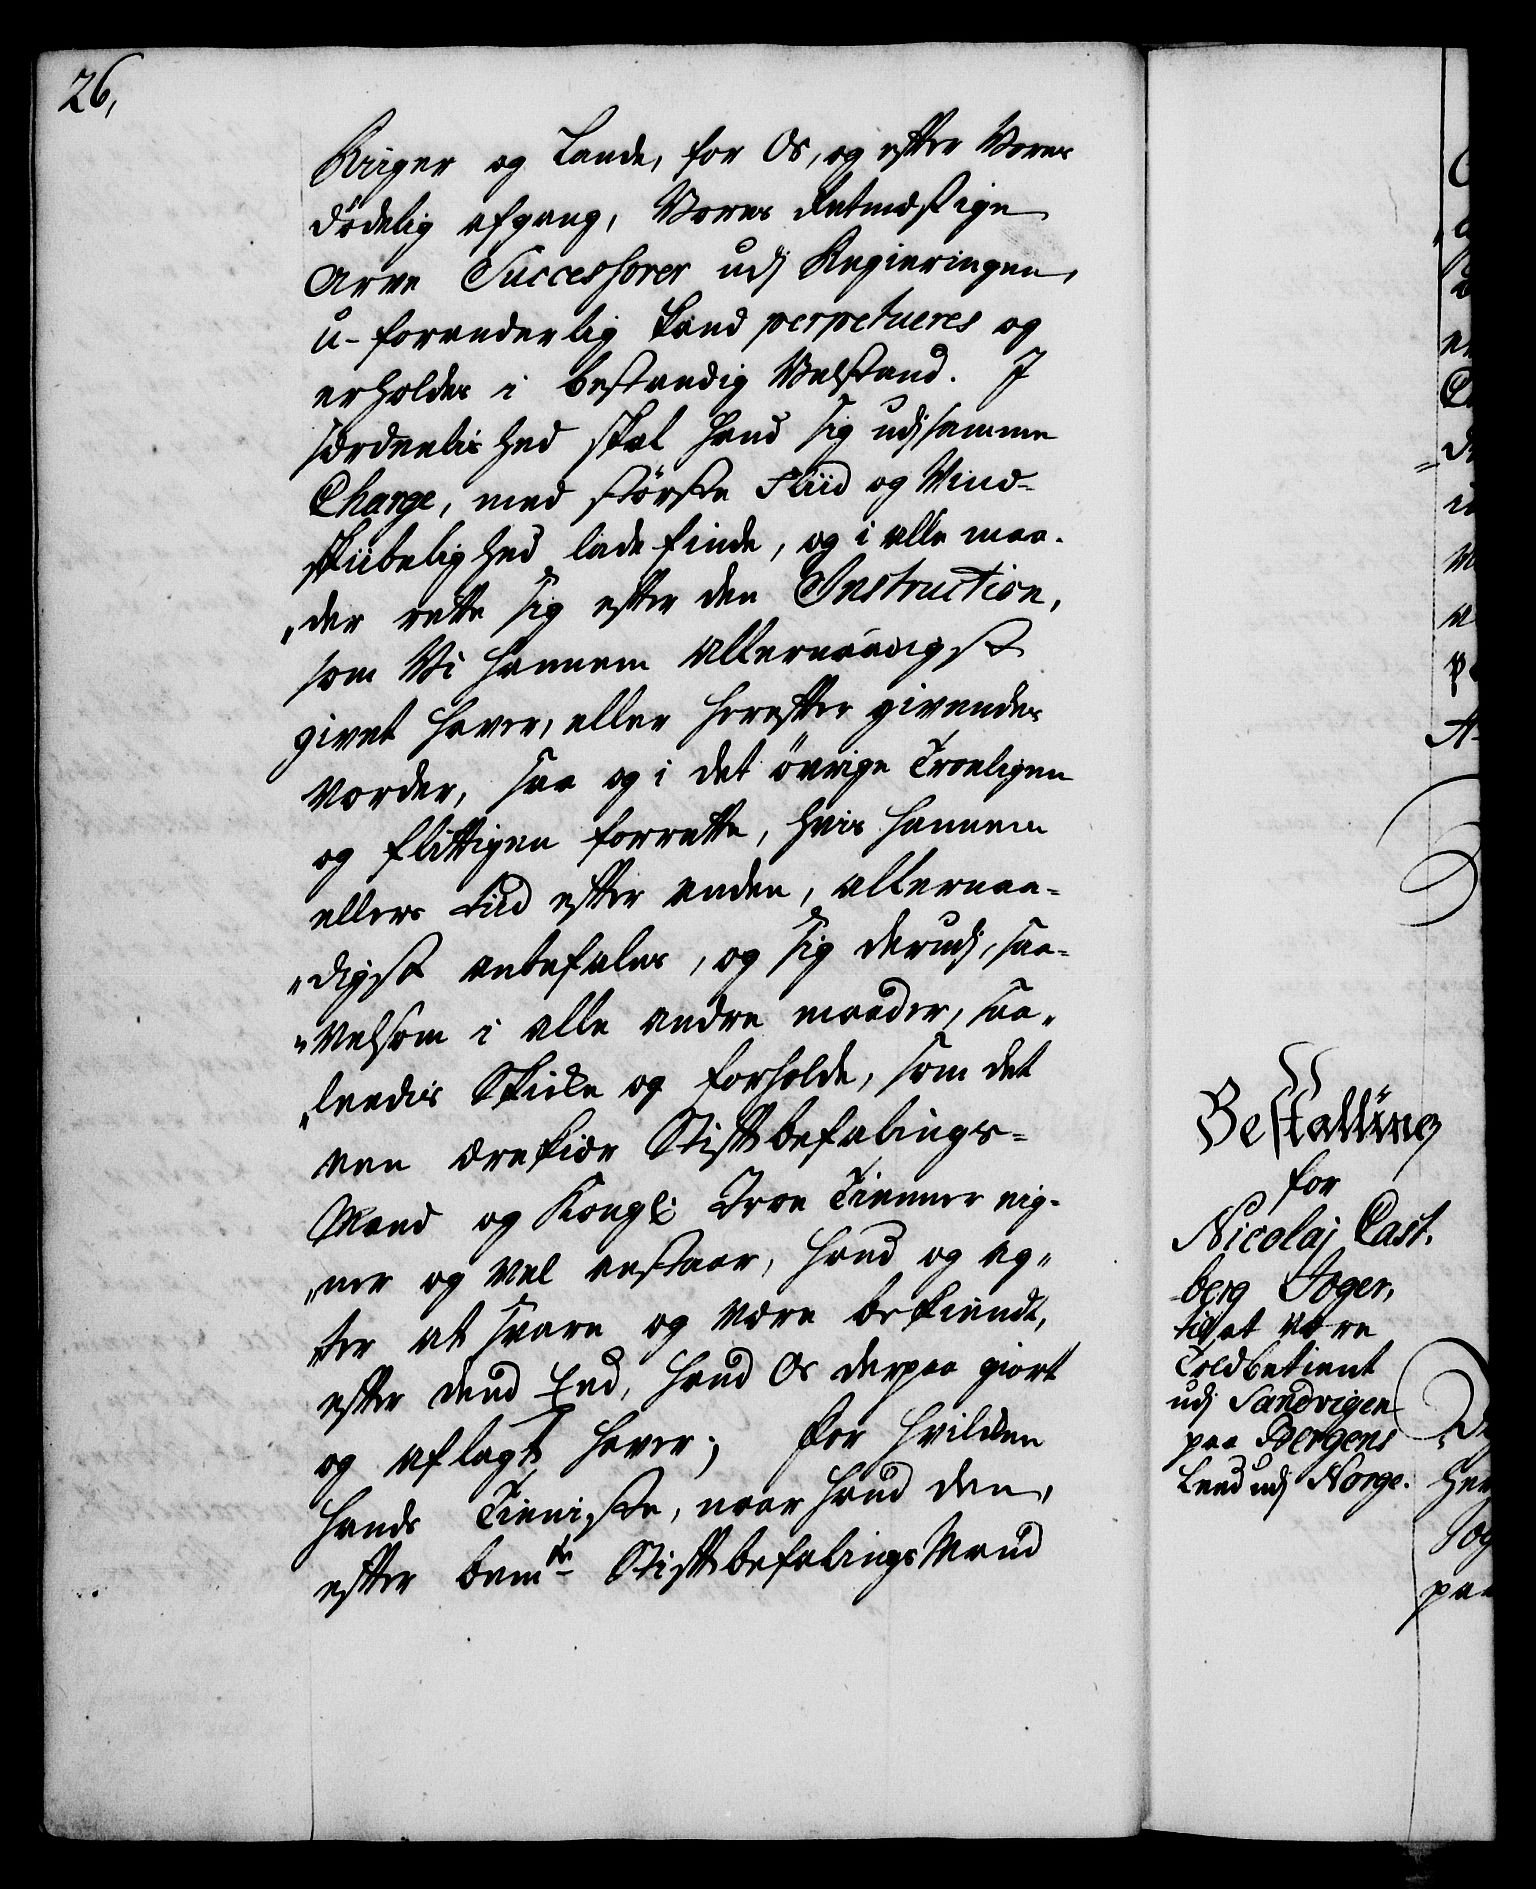 26,
Riiger og Lande, for Os, og efter Vores
dödelig afgang, Vores Retmæssige
Arve Successorer udj Regieringen,
u-foranderlig kand perpetueres og
erholdes i bestandig Velstand. J
særdeelis hed skal hand sig udj samme
Charge, med störste Fliid og Vind-
skibelighed lade finde, og i alle maa-
„der rette sig efter den Instruction,
som Vi hannem allernaadigst
givet haver, eller herefter givendes
vorder, saa og i det övrige Troeligen
og flittigen forrette, hvis hannem
ellers Tiid efter anden, allernaa-
„digst anbefales, og sig derudj, saa-
„velsom i alle andre maader, saa„
„leedis skicke og forholde, som det
een ærekiær Stiftbefalings-
Mand og Kongl: Troe Tienner eig-
„ner og vel anstaar, hand og ag„
ter at svare og være bekiendt,
efter dend Eed, hand Os derpaa giort
og aflagt haver; For hvilcken
hands Tieniste, naar hand den,
efter bemte Stiftbefalings Mand
Bestalling
for
Nicolaj Cast.
berg Soger,
til at være
Toldbetient
udj Sandvigen
paa Bergens
Leed udj Norge.